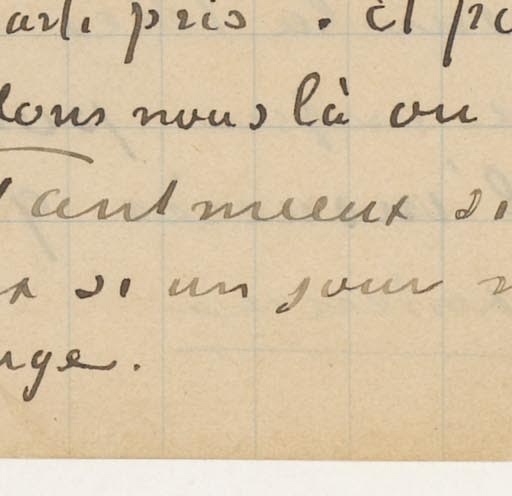 parti pris. et po
lons nous là ou
Tant mieux si
x si un jour n
rge.